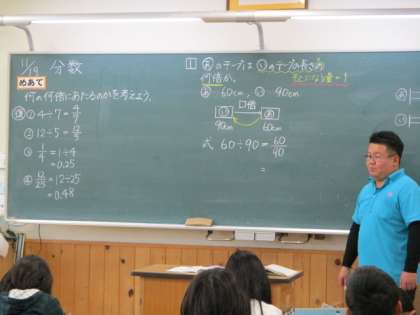 11/19 分数
めあて
何の何倍にあたるのかを考えよう。
復 ① 4÷7=4/7
② 12÷5=12/5
③ 1/4=1÷4
=0.25
④ 12/25=12÷25
=0.48
1 あのテープは いのテープの長さの
何倍か。 もとになる量=1
あ 60cm、い 90cm
□倍
い あ
90cm 60cm
式 60÷90=60/90
=